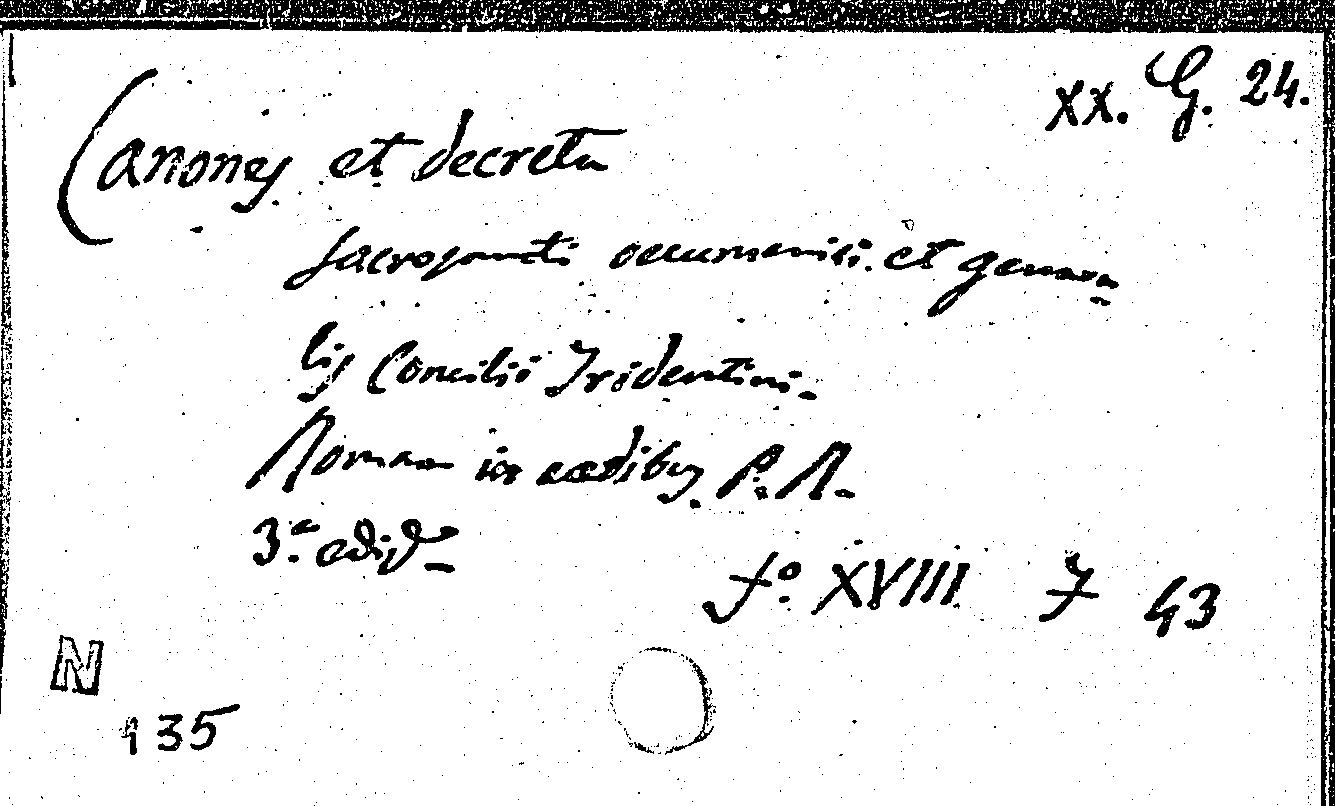 XX. G. 24.
Canones et decreta
sacrosancti oecumenici et genera-
lis Concilii Tridentini.
Romae in aedibus P. R.
3.a
f.o XVIII F 43
N
135